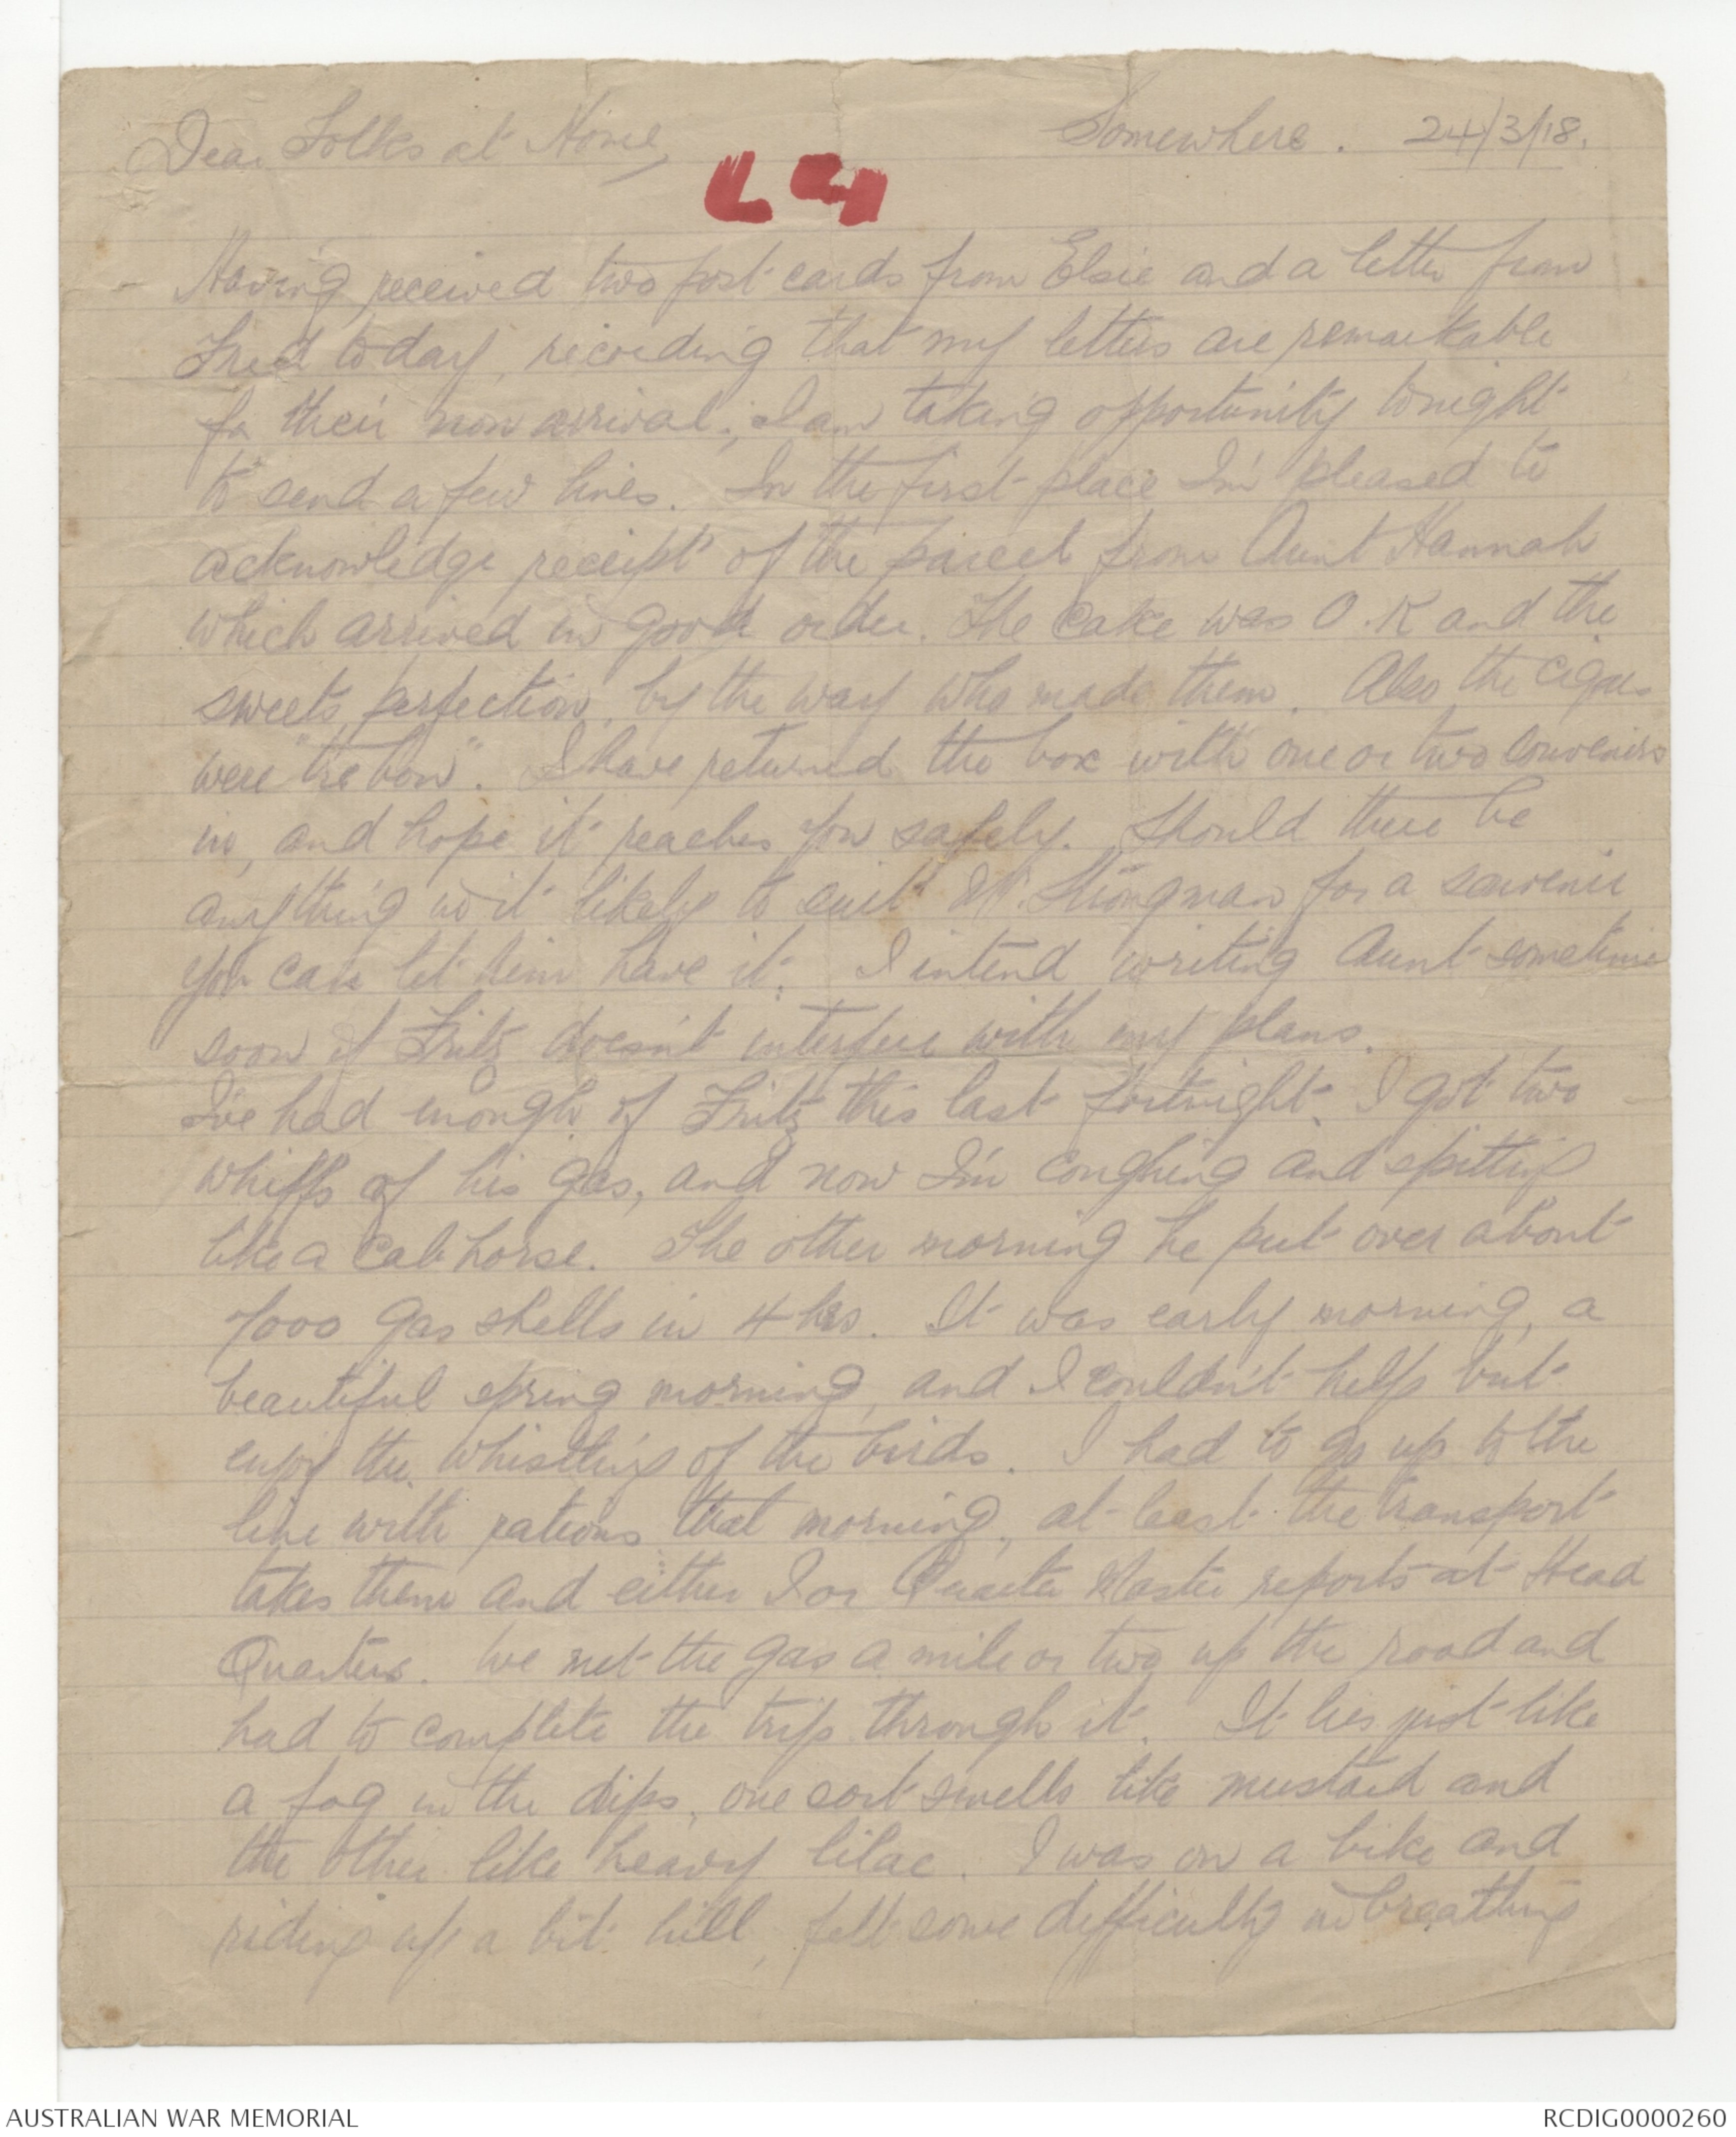 Dear Folks at Home,
Somewhere. 24/3/18.
Having received two post cards from Elsie and a letter from
Fred today, recording that my letters are remarkable
for their non arrival; I am taking opportunity tonight
to send a few lines. In the first place I'm pleased to
acknowledge receipt of the parcel from Aunt Hannah
which arrived in good order. The cake was O.K and the
sweets perfection, by the way who made them. Also the cigars
were "tre bon". I have returned the box with one or two souvenirs
in, and hope it reaches you safely. Should there be
anything in it likely to suit W. Strongman for a souvenir
you can let him have it. I intend writing Aunt sometime
soon if Fritz doesn't interfere with my plans.
I've had enough of Fritz this last fortnight. I got two
whiffs of his gas, and now I'm coughing and spitting
like a cab horse. The other morning he put over about
7000 gas shells in 4 hrs. It was early morning, a
beautiful spring morning, and I couldn't help but
enjoy the whistling of the birds. I had to go up to the
line with rations that morning, at least the transport
takes them and either I or Quarter Master reports at Head
Quarters. We met the gas a mile or two up the road and
had to complete the trip through it. It lies just like
a fog in the dips, one sort smells like mustard and
the other like heavy lilac. I was on a bike and
riding up a bit hill, felt some difficulty in breathing
AUSTRALIAN WAR MEMORIAL
RCDIG0000260